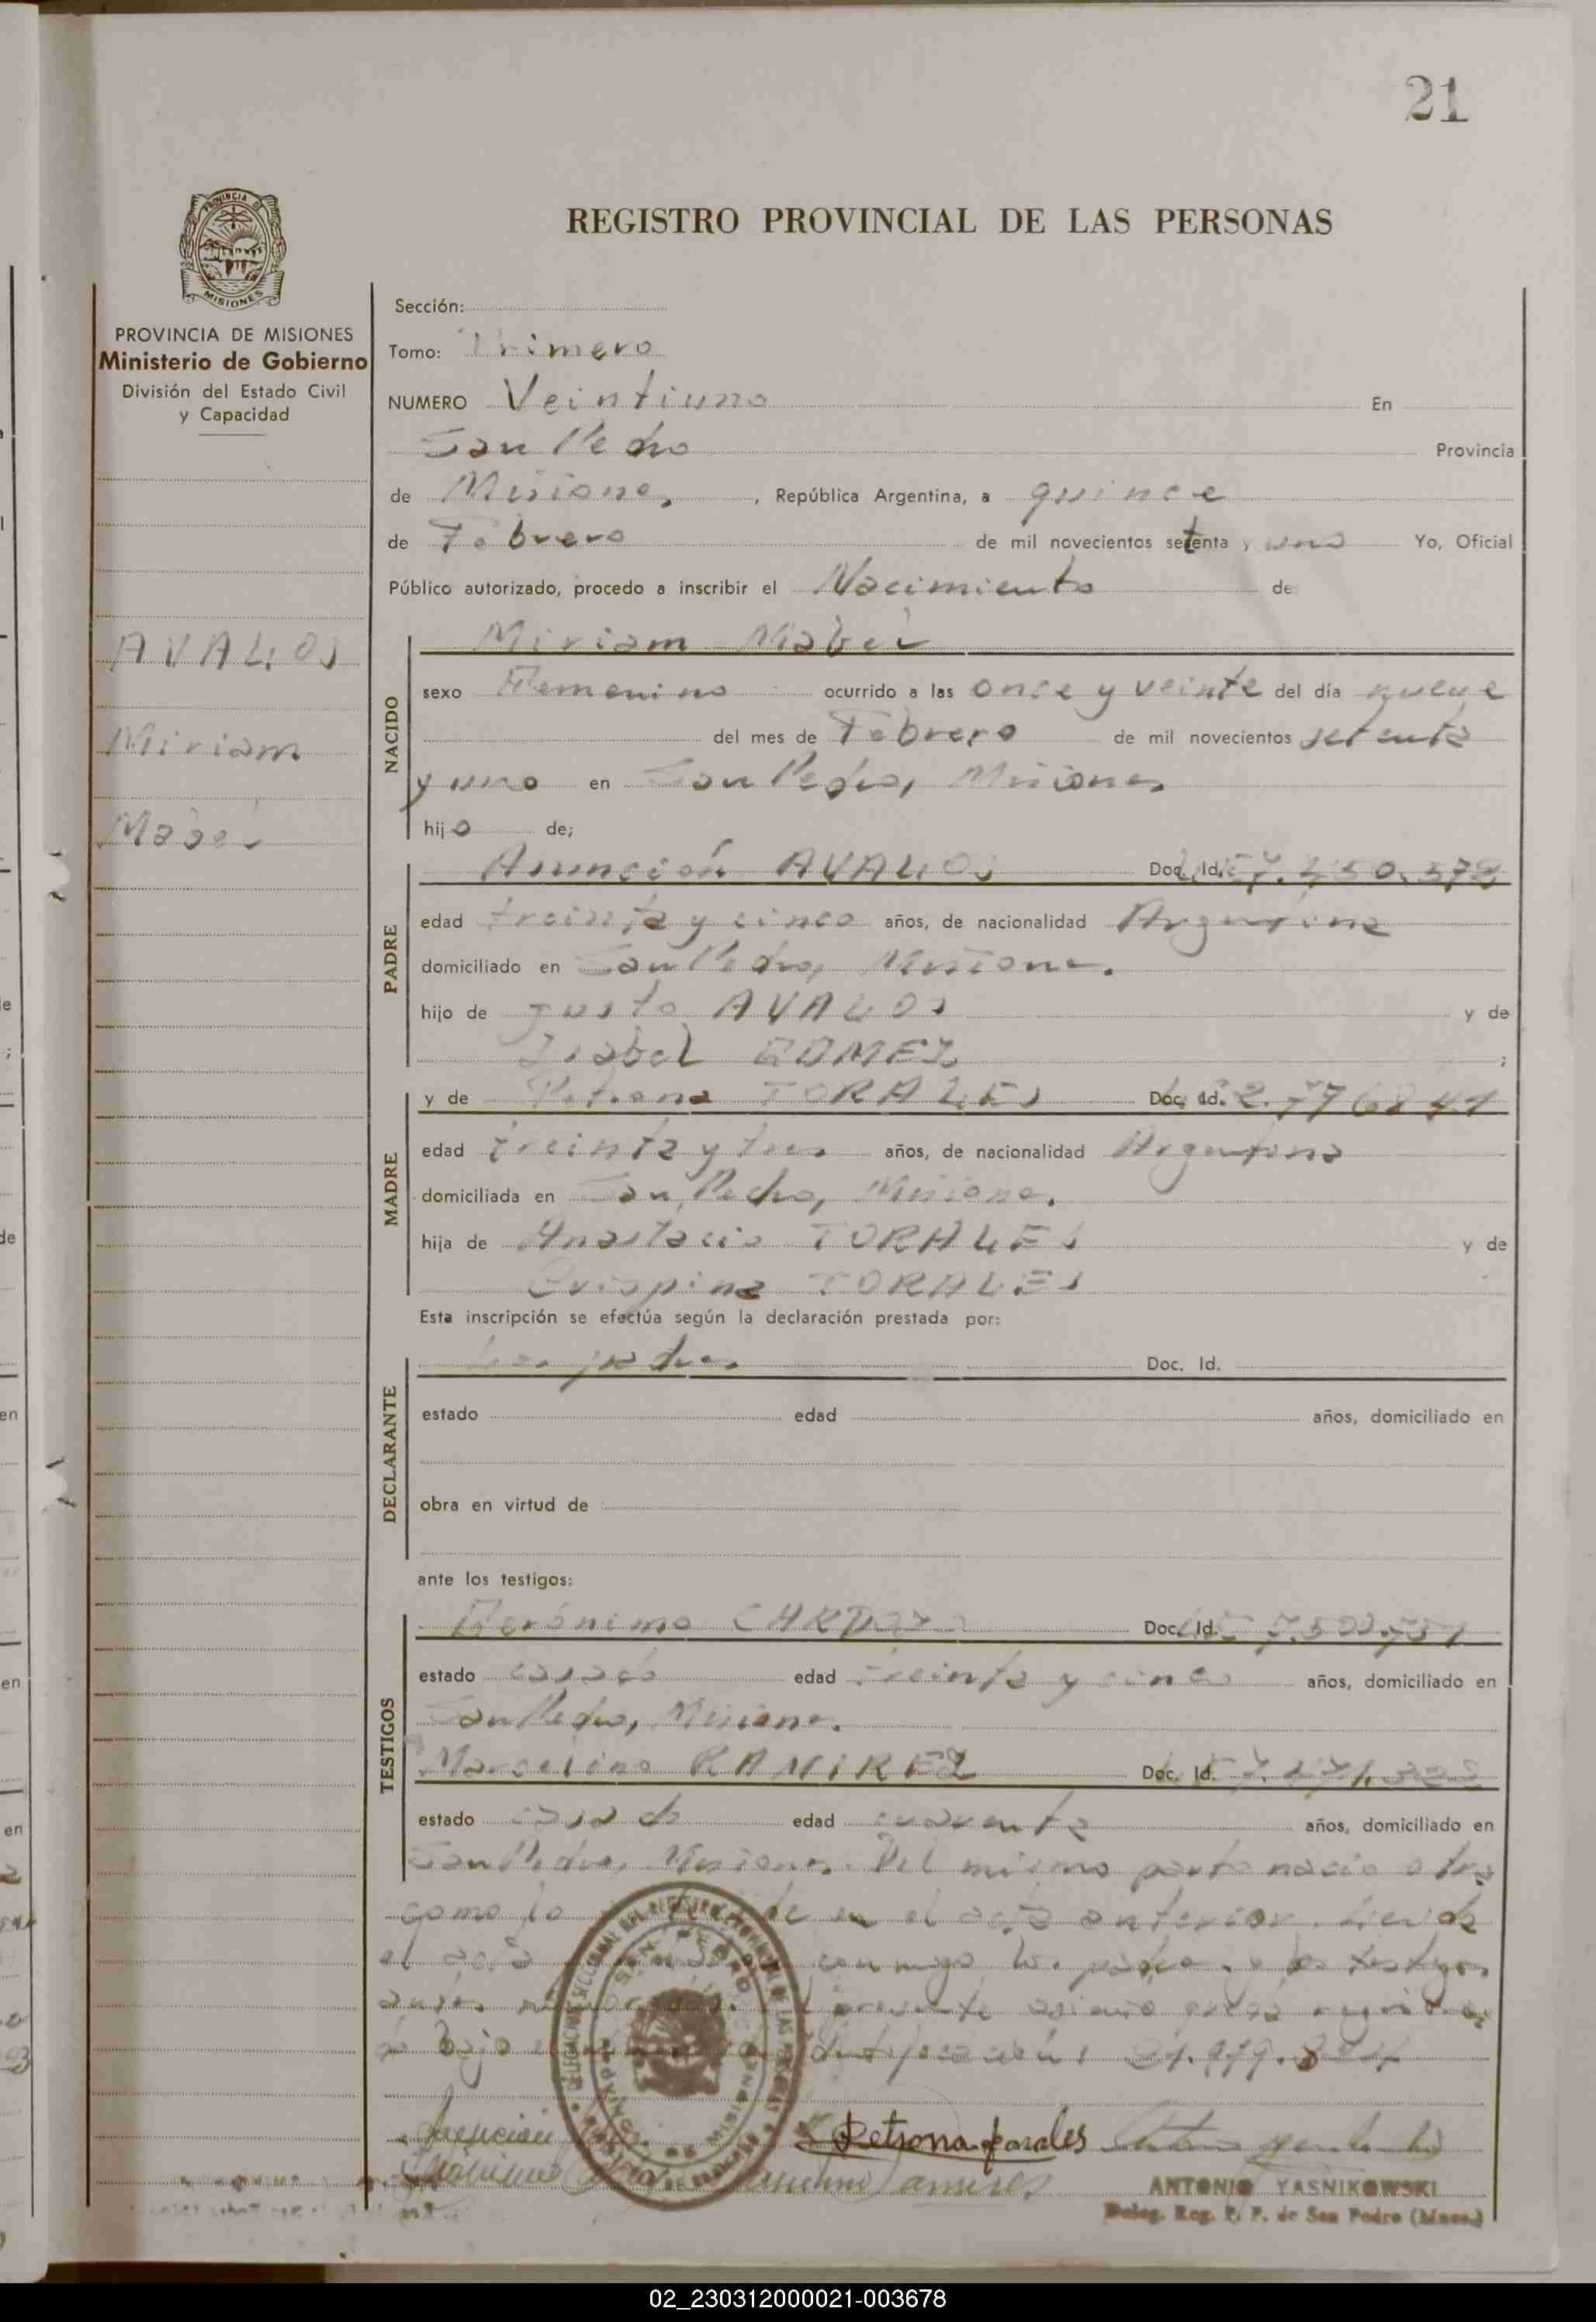 21
PROVINCIA DE
MISIONES
REGISTRO PROVINCIAL DE LAS PERSONAS
PROVINCIA DE MISIONES
Ministerio de Gobierno
División del Estado Civil
y Capacidad
AVALOS
Miriam
Mabel
Sección:
Tomo: Primero
NUMERO Veintiuno En
San Pedro Provincia
de Misiones, , República Argentina, a quince
de Febrero de mil novecientos setenta y uno Yo, Oficial
Público autorizado, procedo a inscribir el Nacimiento de
Miriam Mabel
NACIDO
sexo Femenino ocurrido a las once y veinte del día nueve
del mes de Febrero de mil novecientos setenta
y uno en San Pedro, Misiones
hijo de;
Asunción AVALOS Doc. Id. 7.450.572
PADRE
edad treinta y cinco años, de nacionalidad Argentina
domiciliado en San Pedro, Misiones.
hijo de Justo AVALOS y de
Isabel GOMEZ ;
y de Petrona TORALES Doc. Id. 2.776841
MADRE
edad treinta y tres años, de nacionalidad Argentina
domiciliada en San Pedro, Misiones.
hija de Anastacio TORALES y de
Crispina TORALES
Esta inscripción se efectúa según la declaración prestada por:
Los padres Doc. Id.
DECLARANTE
estado edad años, domiciliado en
obra en virtud de
ante los testigos:
Gerónimo CARDOZO Doc. Id. 7.500.751
TESTIGOS
estado casado edad treinta y cinco años, domiciliado en
San Pedro, Misiones.
Marcelino RAMIREZ Doc. Id.
estado casado edad cuarenta años, domiciliado en
San Pedro, Misiones. Del mismo parto nació otra
como lo en el acta anterior. Leida
el acta conmigo los padres y los testigos
antes el presente asiento
bajo el
Petrona Torales
Ramires
ANTONIO YASNIKOWSKI
Deleg. Reg. P. P. de San Pedro (Mnes.)
02_230312000021-003678